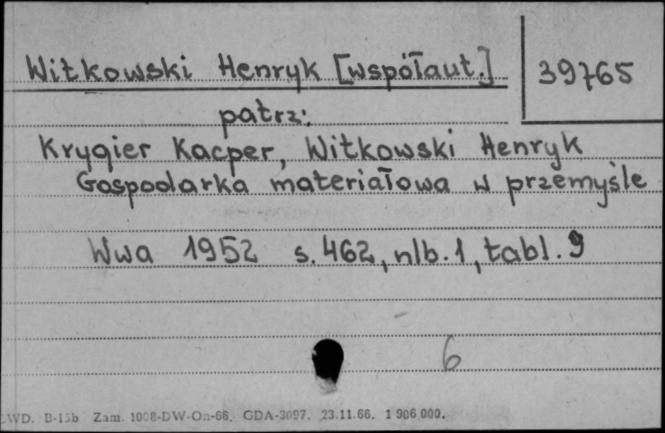 Witkowski Henryk [współaut.]
39765
patrz:
Krygier Kacper, Witkowski Henryk
Gospodarka materiałowa w przemyśle
Wwa 1952 s. 462, nlb. 1, tabl. 9
6
WD. B-15b Zam. 1008-DW-On-66. GDA-3097. 23.11.66. 1 906 000.